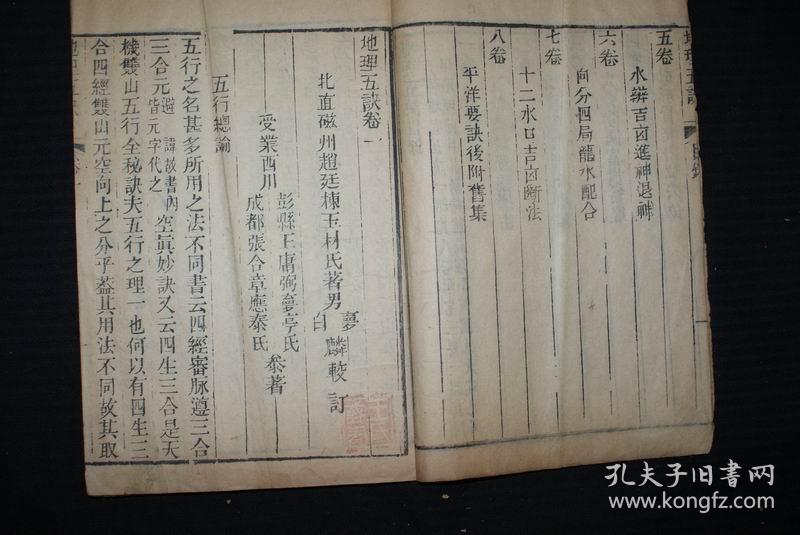 地理五訣
五卷
水辨吉凶進神退神
六卷
向分四局龍水配合
七卷
十二水口吉凶斷法
八卷
平洋要訣後附舊集
地理五訣卷一
北直磁州趙廷棟玉材氏著男
夢麟
白
較訂
受業西川
彭縣王庸弼夢亭氏
成都張含章應泰氏
叅著
五行總論
五行之名甚多所用之法不同書云四經審脉遵三合
三合元避諱故書內皆元字代之空眞妙訣又云四生三合是天
機雙山五行全秘訣夫五行之理一也何以有四生三
合四經雙山元空向上之分乎葢其用法不同故其取
孔夫子旧书网
www.kongfz.com